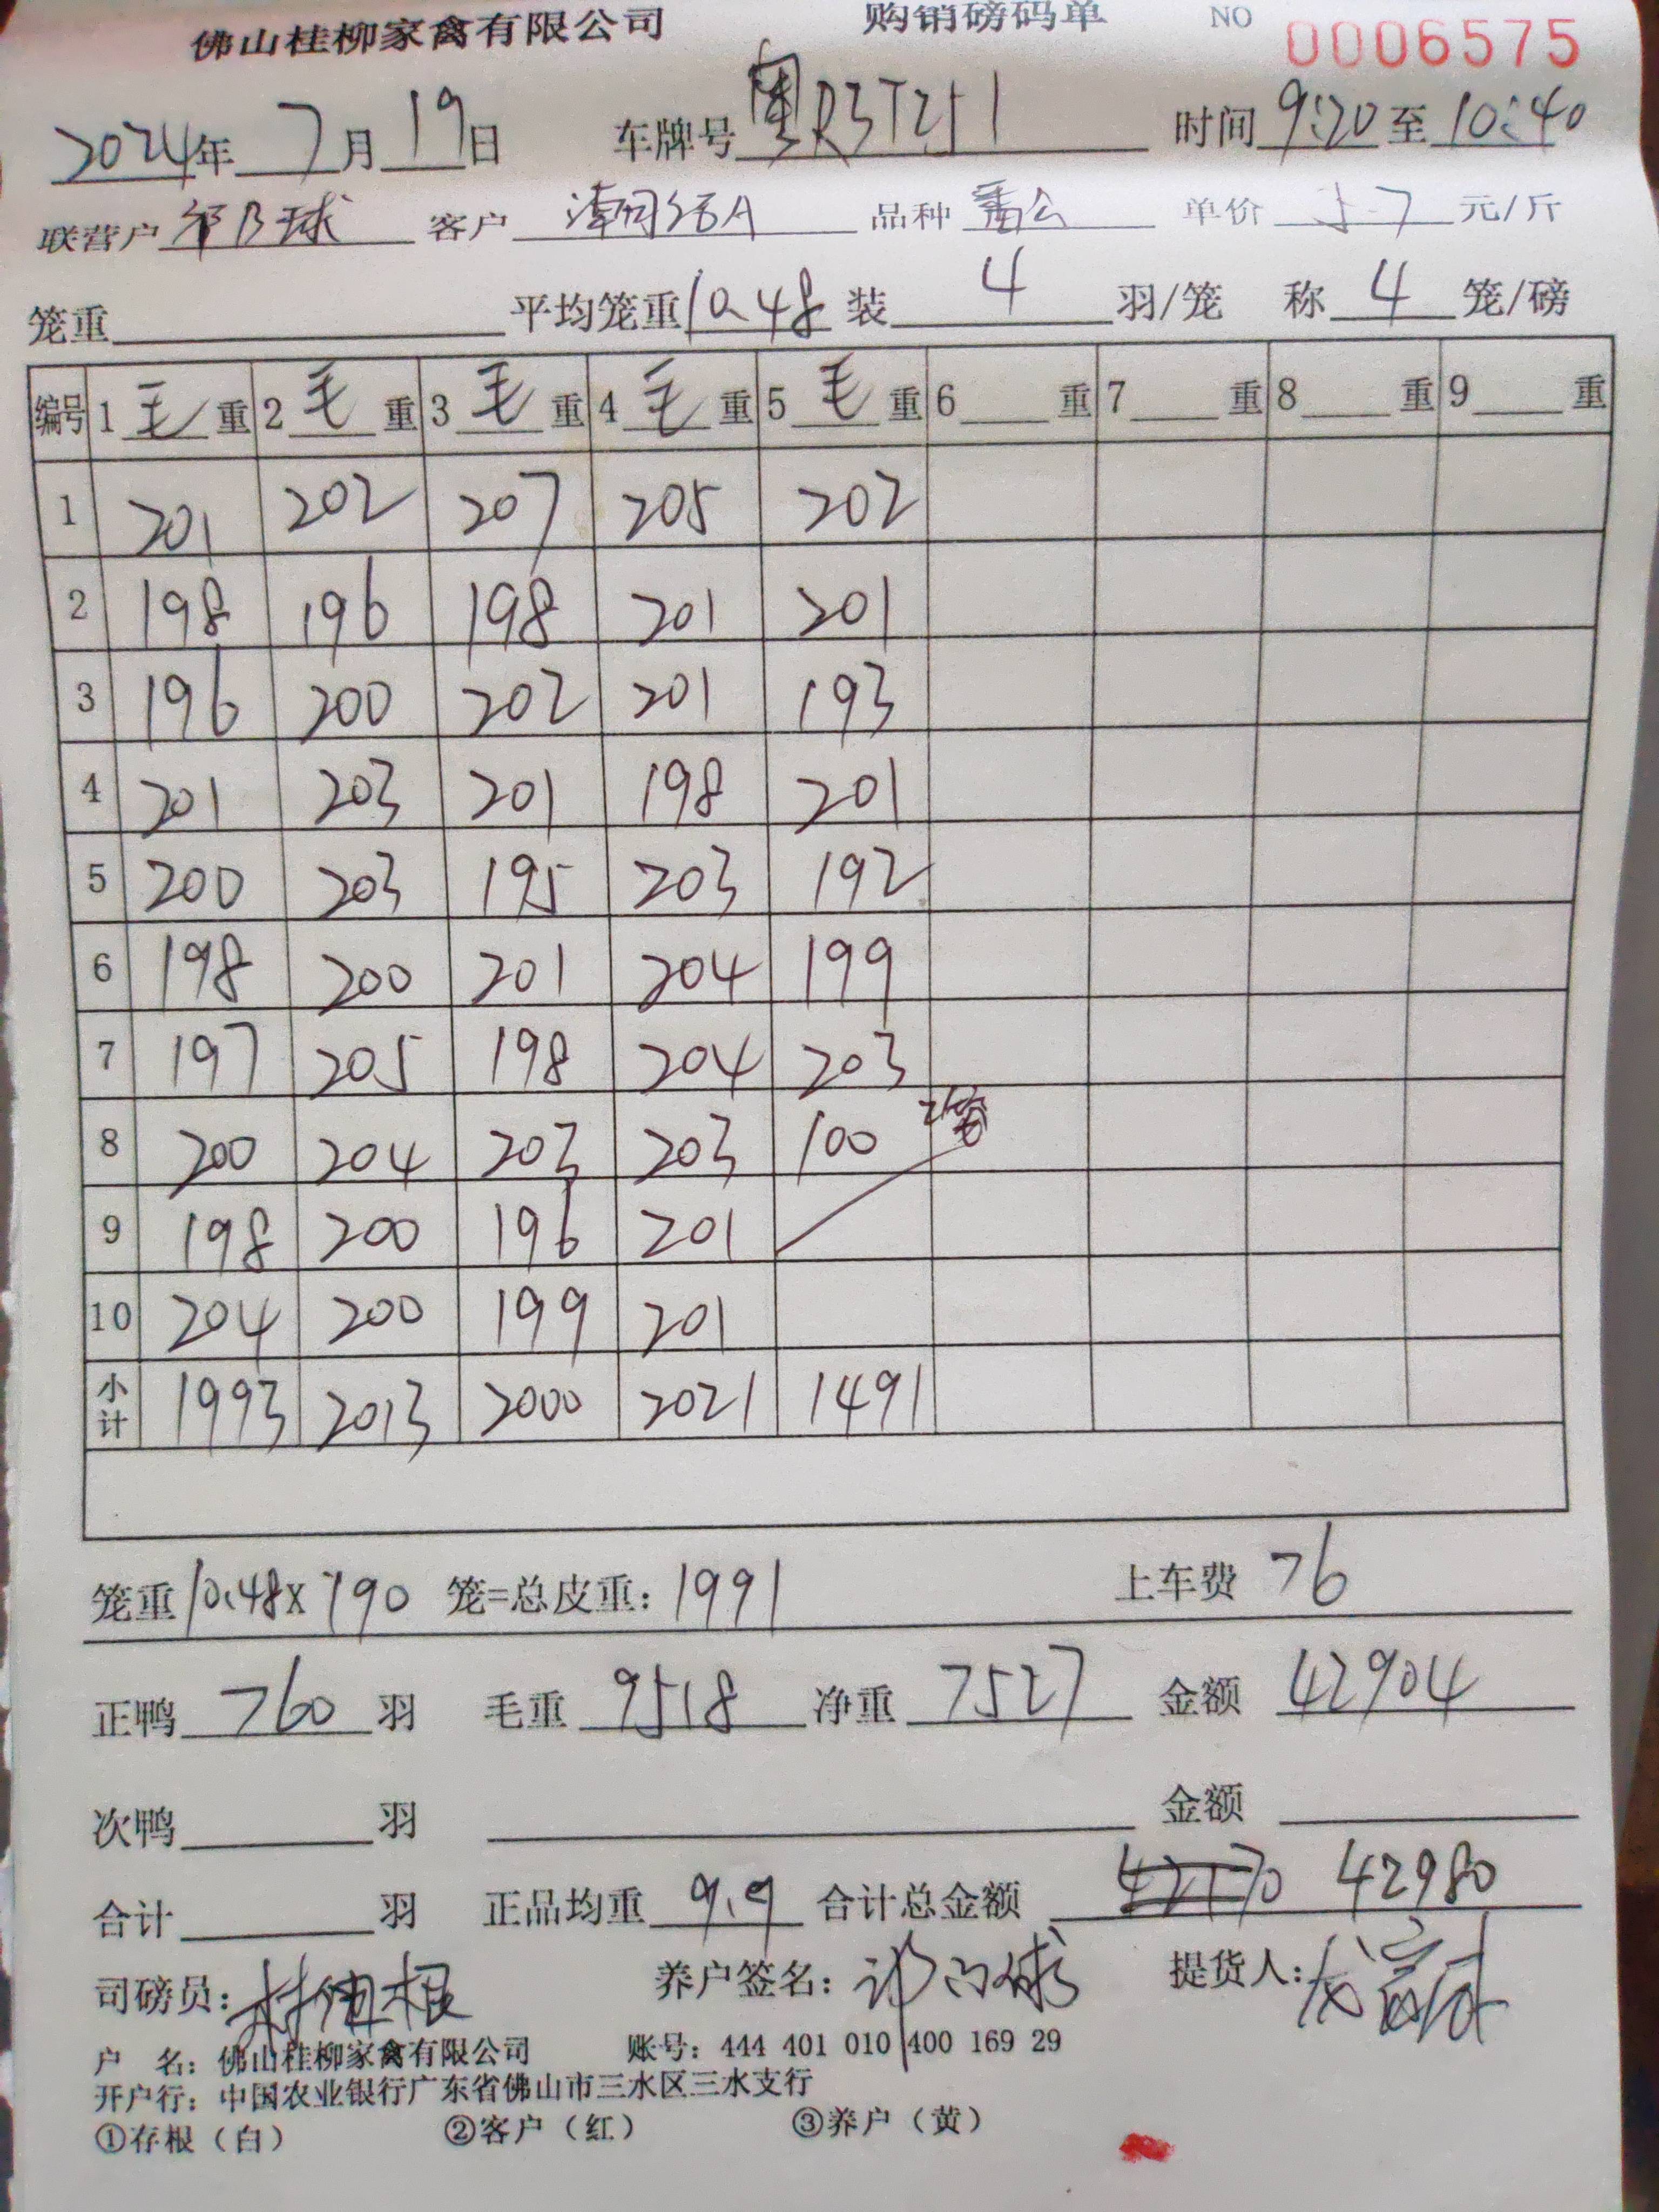 佛山桂柳家禽有限公司 购销磅码单 NO 0006575
2024年 7月 19日 车牌号 粤R3T251 时间 9:20 至 10:40
联营户 球 客户 品种 番公 单价 5.7 元/斤
笼重 平均笼重 10.48 装 4 羽/笼 称 4 笼/磅
编号 1 毛 重 2 毛 重 3 毛 重 4 毛 重 5 毛 重 6 重 7 重 8 重 9 重
1 201 202 207 205 202
2 198 196 198 201 201
3 196 200 202 201 193
4 201 203 201 198 201
5 200 203 195 203 192
6 198 200 201 204 199
7 197 205 198 204 203
8 200 204 203 203 100 2笼
9 198 200 196 201
10 204 200 199 201
小计 1993 2013 2000 2021 1491
笼重 10.48x 190 笼=总皮重: 1991 上车费 76
正鸭 760 羽 毛重 9518 净重 7527 金额 42904
次鸭 羽 金额
合计 羽 正品均重 9.9 合计总金额 42980
司磅员: 养户签名: 提货人:
户 名: 佛山桂柳家禽有限公司 账号: 444 401 010 400 169 29
开户行: 中国农业银行广东省佛山市三水区三水支行
①存根（白） ②客户（红） ③养户（黄）